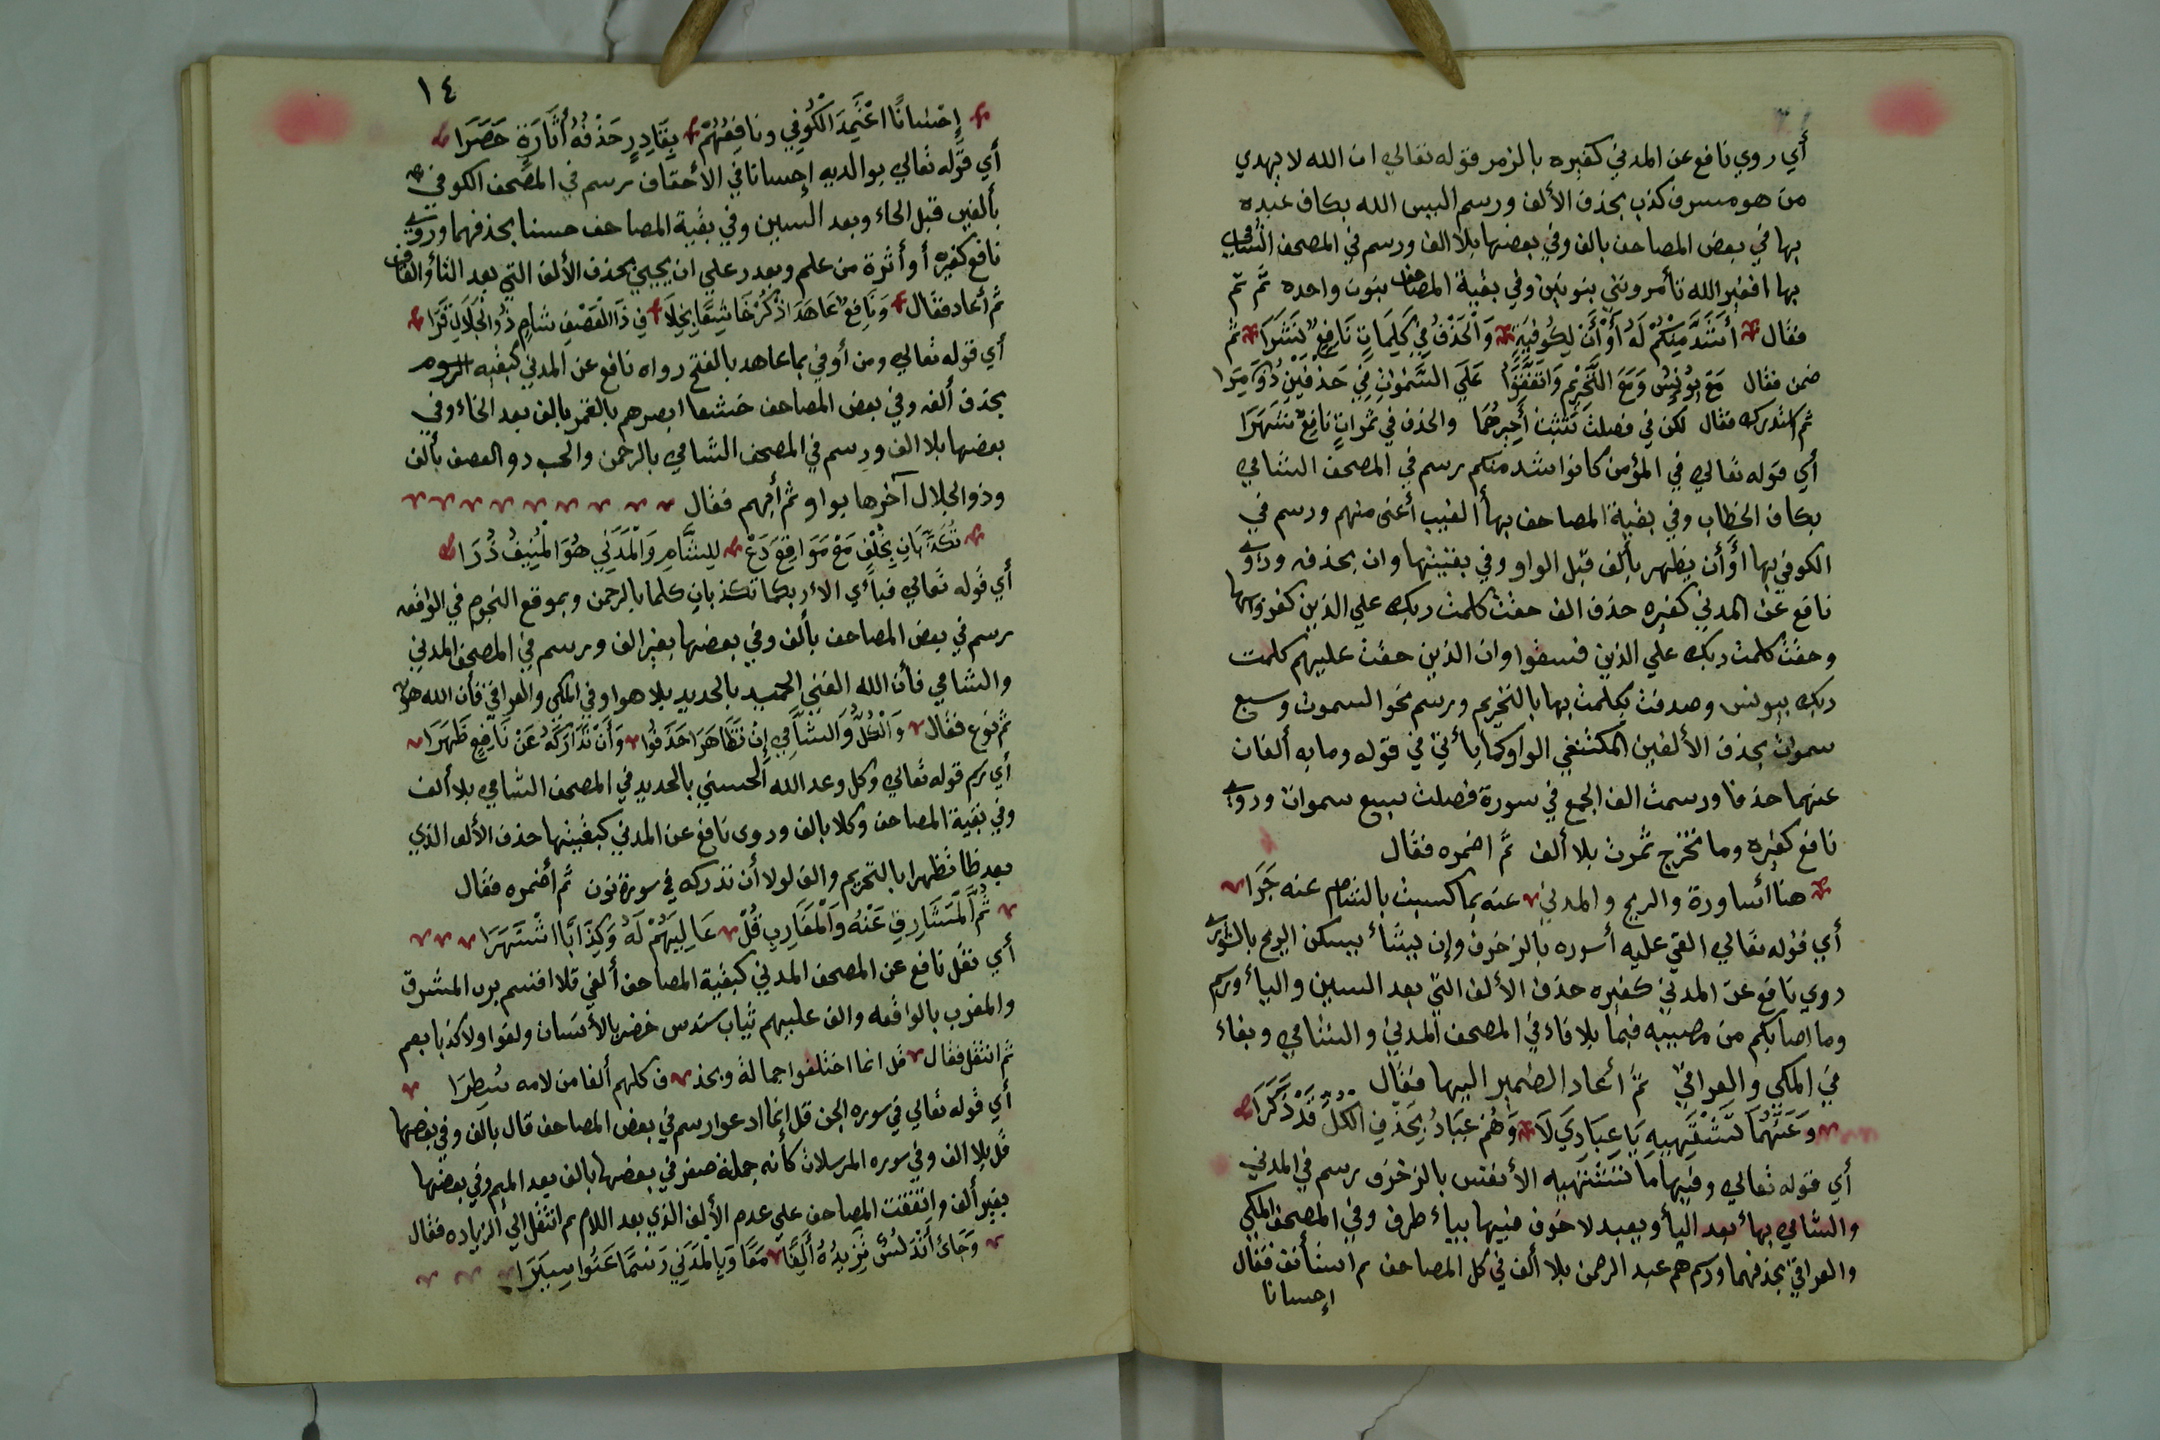 أي روي نافع عن المدني كغيره بالزمر قوله تعالي ان الله لا يهدي
من هو مسرف كذب بحذف الألف ورسم اليس الله بكاف عبده
بها في بعض المصاحف بالف وفي بعضها بلا الف ورسم في المصحف الشامي
بها افغير الله تأمرونني بنونين وفي بقية المصاحف بنون واحده ثم تم
فقال أَشَدَّ مِنْكُمْ لَهُ أَوْ أَنْ لِكُوفِيَةٍ وَالْحَذْفُ فِي كَلِمَاتٍ نَافِعٌ نَشَرَا ثم
ضمن فقال مَعْ يُونُسٍ وَمَعَ التَّحْرِيمِ وَاتَّفَقُوا عَلَي السَّمٰوَاتِ فِي حَذْفَيْنِ دُونَ مِرَا
ثم استدرك فقال لكن في فصلت تثبت أَخِيرُهُمَا والحذف في ثمرات نافع شَهَرَا
أي قوله تعالي في المؤمن كانوا اشد منكم رسم في المصحف الشامي
بكاف الخطاب وفي بقية المصاحف بهأ الغيب أعني منهم ورسم في
الكوفي بها أَوْ أَن يظهر بألف قبل الواو وفي بقيتها وان بحذفه وروي
نافع عن المدني كغيره حذف الف حقت كلمت ربك علي الذين كفروا بها
وحقت كلمت ربك علي الذين فسقوا وان الذين حقت عليهم كلمت
ربك بيونس وصدقت بكلمت بها بالتحريم ورسم نحو السموت وسبع
سموت بحذف الألفين المكتنفي الواو كما يأتي في قوله وما به ألفان
عنهما حذفا ورسمت الف الجمع في سورة فصلت سبع سموات وروي
نافع كغيره وما تخرج ثمرت بلا ألف ثم اضمره فقال
هنا أساورة والريح والمدني عنه بما كسبت بالشام عنه جَرَا
أي قوله تعالي القي عليه أسوره بالزخرف وإن يشأ يسكن الريح بالشوري
روي نافع عن المدني كغيره حذف الألف التي بعد السين واليأ ورسم
وما اصابكم من مصيبه فبما بلا فاء في المصحف المدني والشامي وبفاء
في المكي والعراقي ثم أعاد الضمير اليها فقال
وَعَنْهُمَا تَشْتَهِيهِ يَا عِبَادِيَ لَا وَهُمْ عِبَادُ بِحَذْفِ الْكُلِّ قَدْ ذَكَرَا
أي قوله تعالي وفيها ما تشتهيه الأنفس بالزخرف رسم في المدني
والشامي بهاء بعد اليأ ويعبد لا خوف فيها بياء طرف وفي المصحف المكي
والعراقي بحذفهما ورسم هم عبد الرحمن بلا ألف في كل المصاحف ثم استأنف فقال
إحسانا
١٤
إِحْسَانًا اعْتَمَدَ الْكُوفِي وَنَافِعُهُمْ بِقَادِرٍ حَذْفُهُ أَثَارَةٍ حَصَرَا
أي قوله تعالي بوالديه إحسانا في الأحقاف رسم في المصحف الكوفي
بألفين قبل الحاء وبعد السين وفي بقية المصاحف حسنا بحذفهما وروي
نافع كغيره أو أثرة من علم وبقدر علي ان يحيي بحذف الألف التي بعد الثأ والقاف
ثم أعاد فقال وَنَافِعٌ عَاهَدَ اذْكُرْ خَاشِعًا بِخِلَا فٍ ذَا الْعَصْفِ شَامٍ ذُو الْجَلَالِ قَرَا
أي قوله تعالي ومن أوفي بما عاهد بالفتح رواه نافع عن المدني كبقيه الرسوم
بحذف ألفه وفي بعض المصاحف خشعا ابصرهم بالقمر بالف بعد الخاء وفي
بعضها بلا الف ورسم في المصحف الشامي بالرحمن والحب ذو العصف بألف
وذو الجلال آخرها بواو ثم أبهم فقال
تُكَذِّبَانِ بِخُلْفٍ مَعْ مَوَاقِعَ دَعْ لِلشَّامِ وَالْمَدَنِي هُوَ الْمُنِيفُ ذُرَا
أي قوله تعالي فبأي الاء ربكما تكذبان كلما بالرحمن وبموقع النجوم في الواقعه
رسم في بعض المصاحف بألف وفي بعضها بغير الف ورسم في المصحف المدني
والشامي فأن الله الغني الحميد بالحديد بلا هو وفي المكي والعراقي فأن الله هو
ثم نوع فقال وَالْكُلُّ وَالشَّامِي إِنْ تَظَاهَرَا حَذَفُوا وَأَنْ تَدَارَكَهُ عَنْ نَافِعٍ ظَهَرَا
أي رسم قوله تعالي وكل وعد الله الحسني بالحديد في المصحف الشامي بلا ألف
وفي بقية المصاحف وكلا بالف وروى نافع عن المدني كبقيتها حذف الألف الذي
بعد ظا تظهرا بالتحريم والف لولا أن تدركه في سورة نون ثم أضمره فقال
ثُمَّ الْمَشَارِقِ عَنْهُ وَالْمَغَارِبِ قُلْ عَالِيَهُمْ لَهُ وَكِذَابًا اشْتَهَرَا
أي نقل نافع عن المصحف المدني كبقية المصاحف ألفي فلا اقسم برب المشرق
والمغرب بالواقعه والف عليهم ثياب سندس خضر بالأنسان ولغوا ولا كذبا بعم
ثم انتقل فقال قل انما اختلفوا جمالة وبحذ ف كلهم ألفا من لامه سُطِرَا
أي قوله تعالي في سوره الجن قل إنما ادعوا رسم في بعض المصاحف قال بالف وفي بعضها
قل بلا الف وفي سوره المرسلات كأنه جملة صفر في بعضها بالف بعد الميم وفي بعضها
بغير ألف واتفقت المصاحف علي عدم الألف الذي بعد اللام ثم انتقل الي الزياده فقال
وَجَائَ أَنْدَلُسٌ تَزِيدُهُ أَلِفًا مَعًا وَبِالْمَدَنِي رَسْمًا عَنُوا سِيَرَا